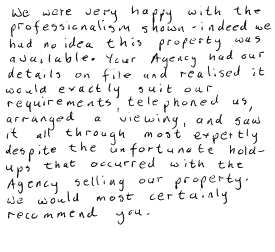 We were very happy with the
professionalism shown - indeed we
had no idea this property was
available. Your Agency had our
details on file and realised it
would exactly suit our
requirements, telephoned us,
arranged a viewing, and saw
it all through most expertly
despite the unfortunate hold-
ups that occurred with the
Agency selling our property.
We would most certainly
recommend you.